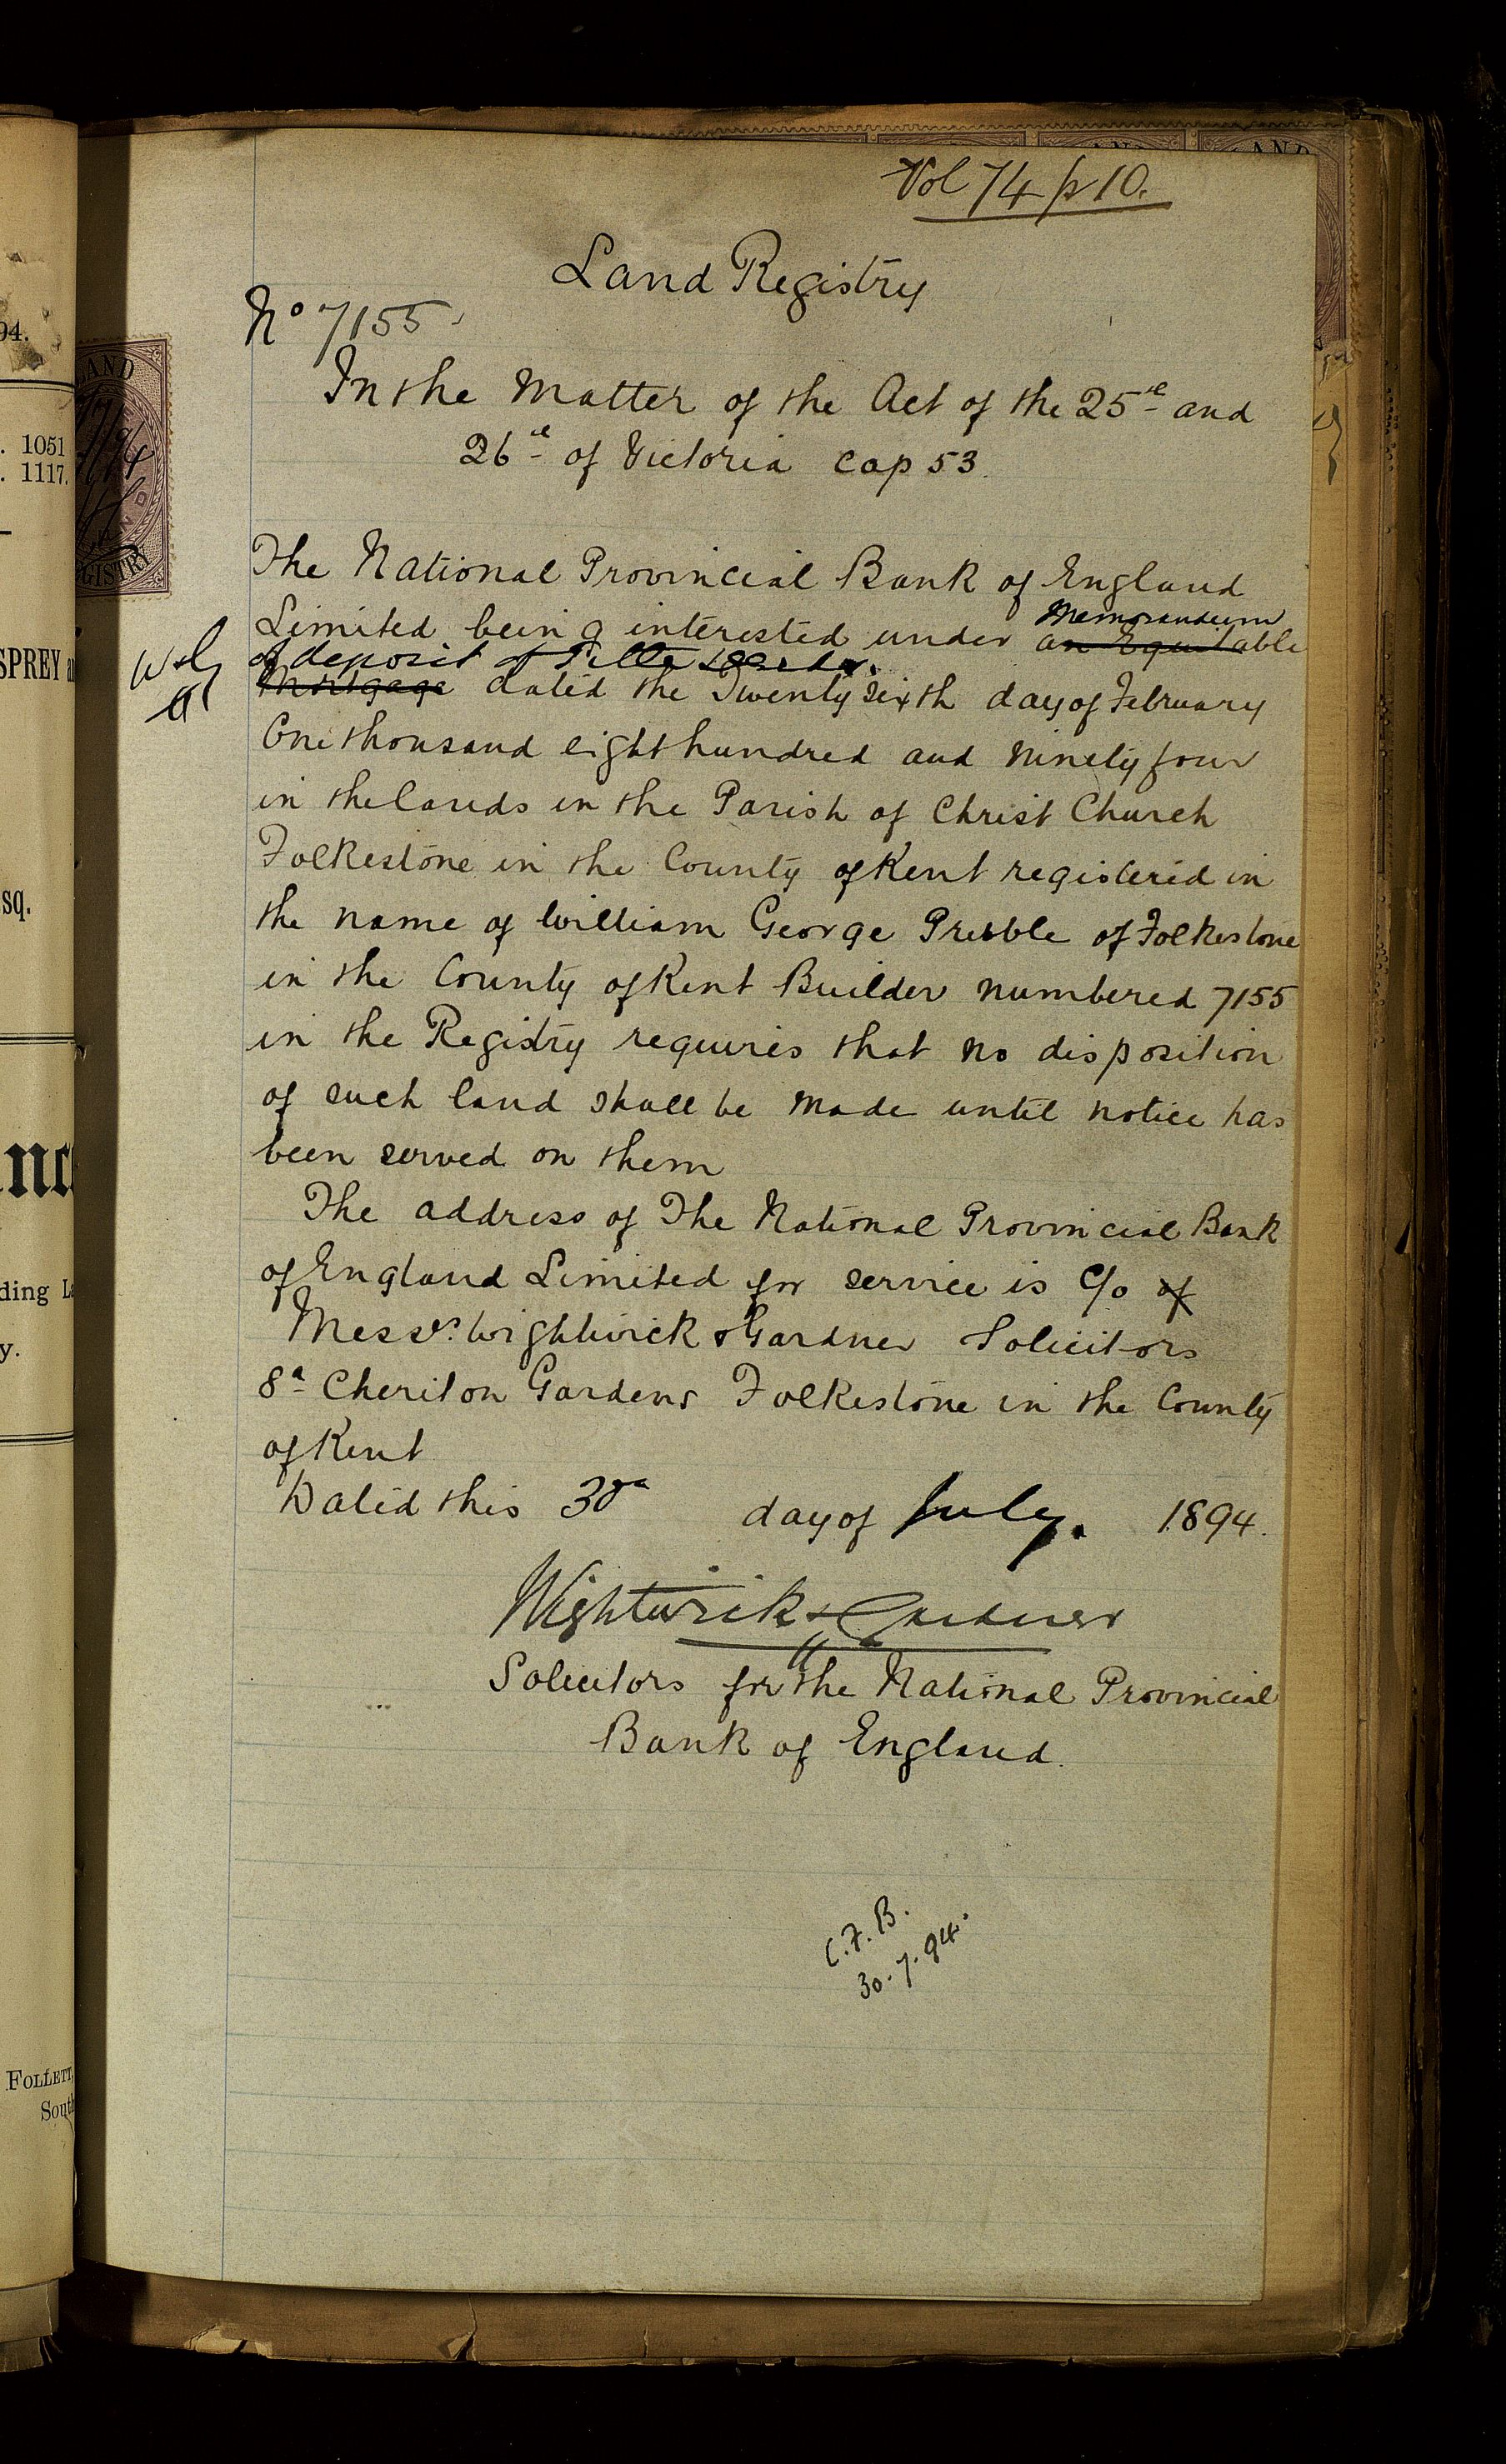 94.
. 1051
. 1117.
SPREY a
sq.
ding L
y.
FOLLETT,
South
AND
GISTRY
Vol 74 p 10.
Land Registry
No 7155
In the Matter of the Act of the 25th and
26th of Victoria cap 53.
The National Provincial Bank of England
Memorandum
Limited being interested under an Equitable
of deposit of Title Deeds
Mortgage dated the Twenty sixth day of February
W & G
One thousand eight hundred and ninety four
in the lands in the Parish of Christ Church
Folkestone in the County of Kent registered in
the name of William George Prebble of Folkestone
in the County of Kent Builder numbered 7155
in the Registry requires that no disposition
of such land shall be made until notice has
been served on them
The address of The National Provincial Bank
of England Limited for service is c/o of
Messrs. Wightwick & Gardner Solicitors
8a Cheriton Gardens Folkestone in the County
of Kent
Dated this 30th day of July. 1894.
Wightwick & Gardner
Solicitors for the National Provincial
Bank of England.
C.F.B.
30.7.94.